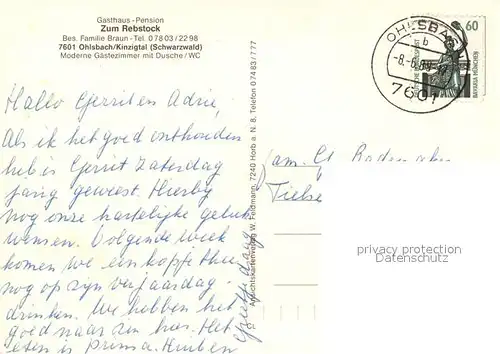 Gasthaus - Pension
Zum Rebstock
Bes. Familie Braun - Tel. 0 78 03 / 22 98
7601 Ohlsbach/Kinzigtal (Schwarzwald)
Moderne Gästezimmer mit Dusche / WC
Hallo Gerrit en Adrie,
Als ik het goed onthouden
heb is Gerrit Zaterdag
jarig geweest. Hierbij
nog onze hartelijke geluk
wensen. Volgende week
komen we een kopje thee
nog op zyn verjaardag
drinken. We hebben het
goed naar zin hier. Het
eten is prima.
Ansichtskartenverlag W. Feldmann, 7240 Horb a. N. 8, Telefon 07483/777
OHLSBACH
b
7601
60
DEUTSCHE BUNDESPOST
BAVARIA MÜNCHEN
Fam.
privacy protection